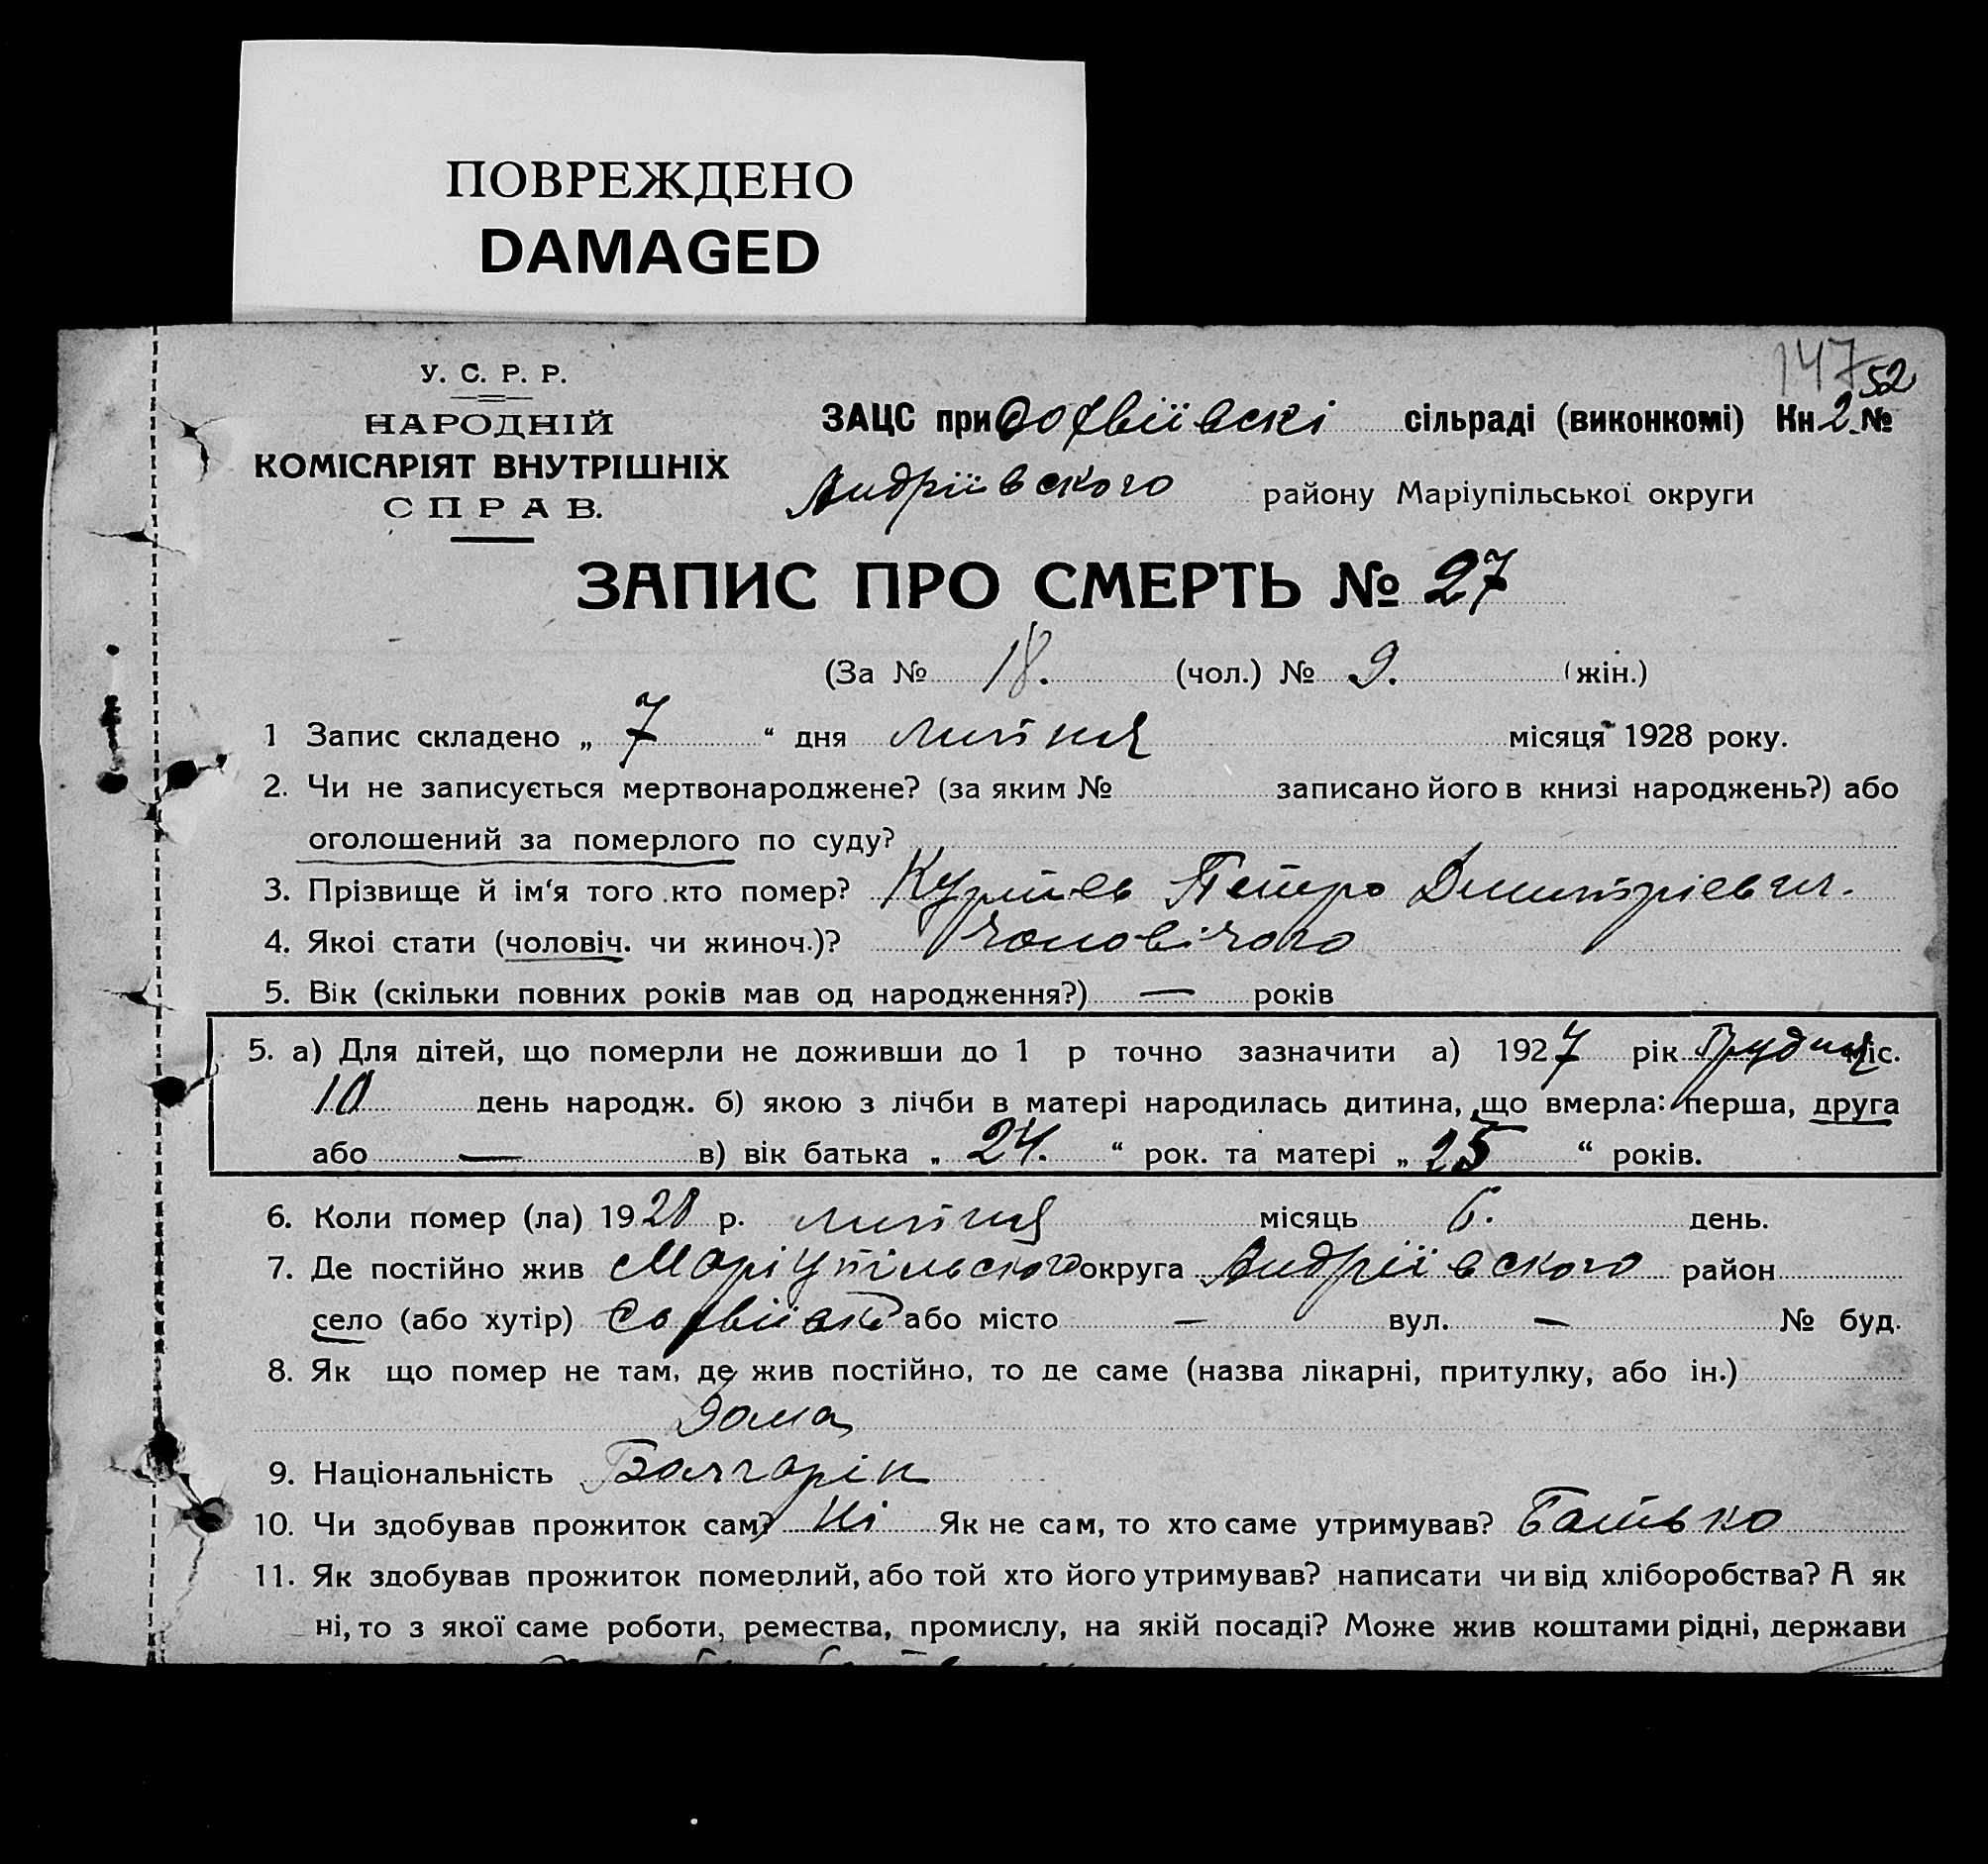 ПОВРЕЖДЕНО
DAMAGED
147
52
У. С. Р. Р.
НАРОДНІЙ
КОМІСАРІЯТ ВНУТРІШНІХ
СПРАВ.
ЗАЦС при Софвіївскі сільраді (виконкомі) Кн 2. №
Андріївского району Маріупільської округи
ЗАПИС ПРО СМЕРТЬ № 27
(За № 18. (чол.) № 9. (жін.)
1 Запис складено „ 7 “ дня липня місяця 1928 року.
2. Чи не записується мертвонароджене? (за яким № записано його в книзі народжень?) або
оголошений за померлого по суду?
3. Прізвище й ім‘я того кто помер? Петро Дмитрієвич.
4. Якоі стати (чоловіч. чи жиноч.)? чоловічого
5. Вік (скільки повних років мав од народження?) — років
5. а) Для дітей, що померли не доживши до 1 р точно зазначити а) 1927 рік Грудня міс.
10 день народж. б) якою з лічби в матері народилась дитина, що вмерла: перша, друга
або — в) вік батька „ 24. “ рок. та матері „ 25 “ років.
6. Коли помер (ла) 1928 р. липня місяць 6. день.
7. Де постійно жив Маріупільского округа Андріївского район
село (або хутір) Софвіївкє або місто — вул. — № буд.
8. Як що помер не там, де жив постійно, то де саме (назва лікарні, притулку, або ін.)
Дома
9. Національність Болгарін
10. Чи здобував прожиток сам? Ні Як не сам, то хто саме утримував? Батько
11. Як здобував прожиток померлий, або той хто його утримував? написати чи від хліборобства? А як
ні, то з якої саме роботи, ремества, промислу, на якій посаді? Може жив коштами рідні, держави